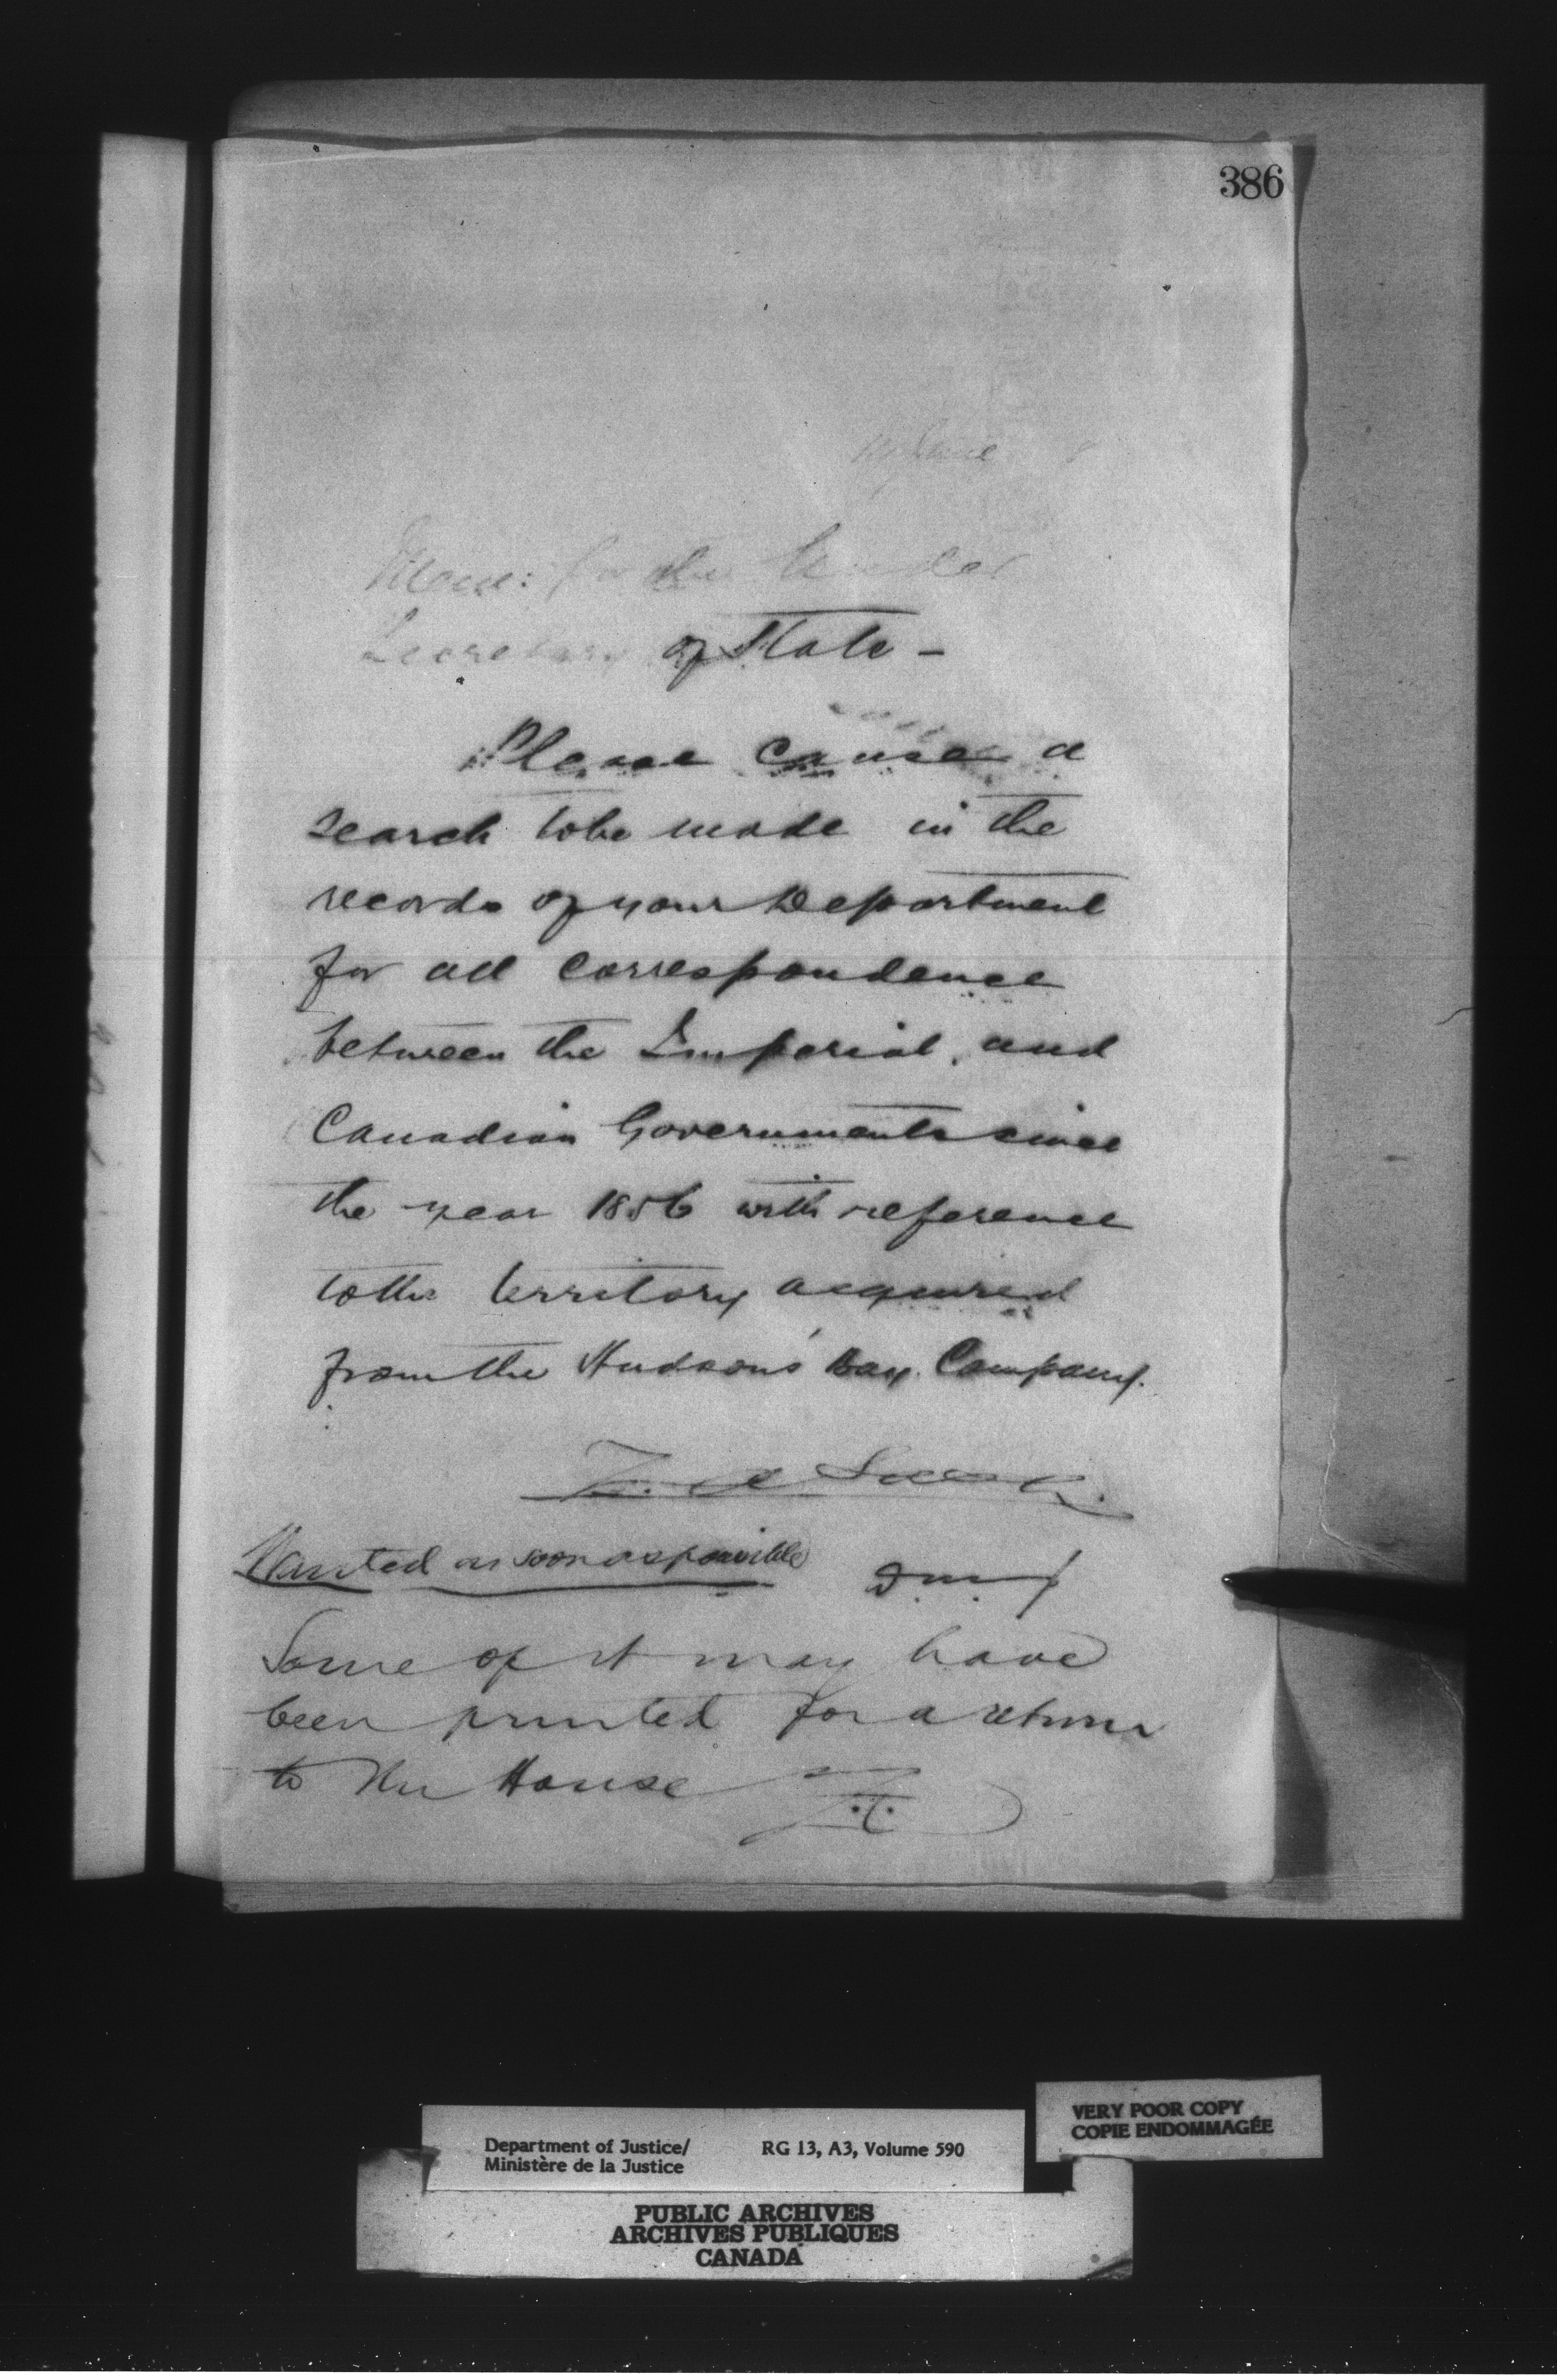 386
19 June
Memo: for the Under
Secretary of State -
Please cause a
search to be made in the
records of your Department
for all correspondence
between the Imperial and
Canadian Governments since
the year 1856 with reference
to the territory acquired
from the Hudson's Bay Company.
Z. A. Lash
Wanted as soon as possible
D.M.J
Some of it may have
been printed for a return
to the House
VERY POOR COPY
COPIE ENDOMMAGÉE
Department of Justice/ RG 13, A3, Volume 590
Ministère de la Justice
PUBLIC ARCHIVES
ARCHIVES PUBLIQUES
CANADA